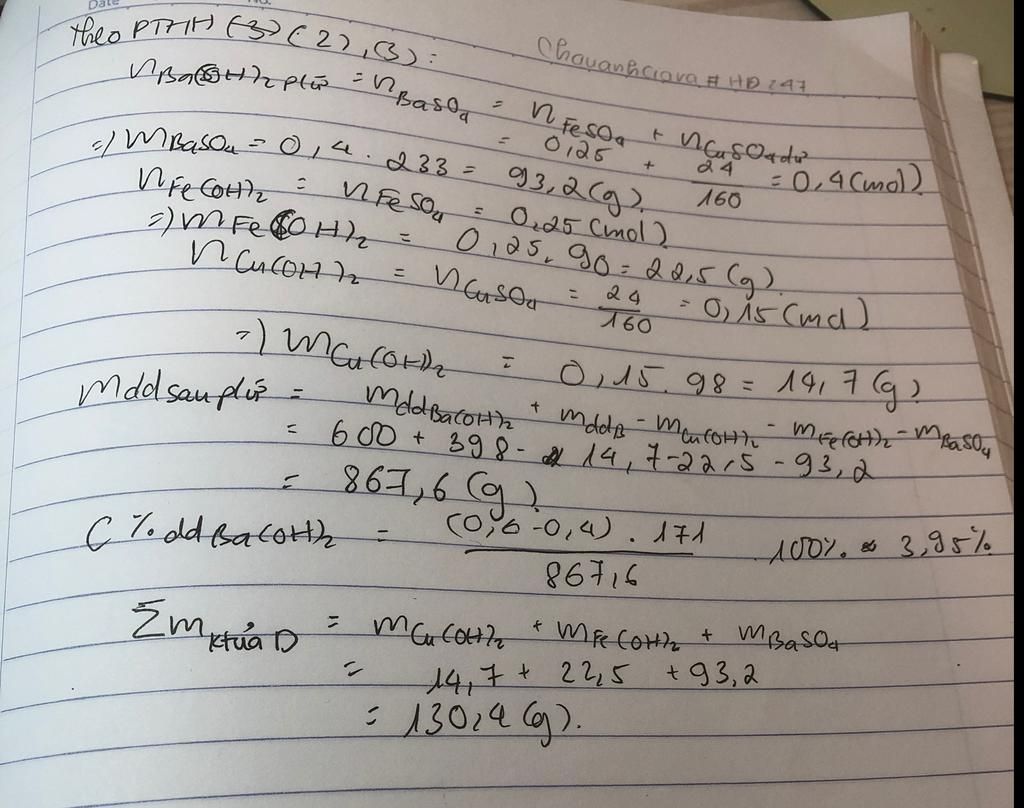 Date No.
theo PTHH (3) (2), (3):
Chauanhciara # HD 247
nBa(OH)2 pứ = nBaSO4 = nFeSO4 + nCuSO4 dư
= 0,25 + 24/160 = 0,4 (mol)
=) mBaSO4 = 0,4 . 233 = 93,2 (g)
nFe(OH)2 = nFeSO4 = 0,25 (mol)
=) mFe(OH)2 = 0,25. 90 = 22,5 (g)
nCu(OH)2 = nCuSO4 = 24/160 = 0,15 (mol)
=) mCu(OH)2 = 0,15. 98 = 14,7 (g)
mdd sau pứ = mddBa(OH)2 + mddB - mCu(OH)2 - mFe(OH)2 - mBaSO4
= 600 + 398 - 14,7 - 22,5 - 93,2
= 867,6 (g)
C% ddBa(OH)2 = (0,6 - 0,4) . 171 / 867,6 100% ≈ 3,95%
Σm ktủa D = mCu(OH)2 + mFe(OH)2 + mBaSO4
= 14,7 + 22,5 + 93,2
= 130,4 (g).